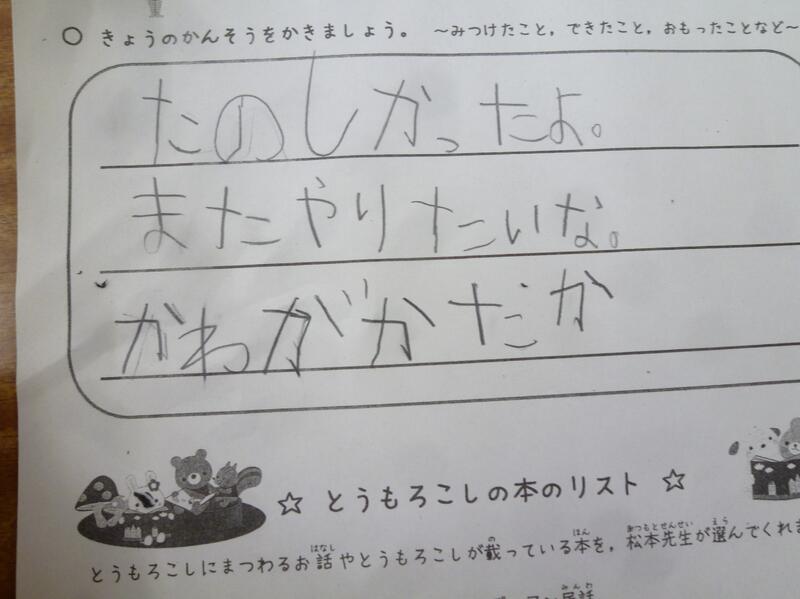 ○ きょうのかんそうをかきましょう。 ～みつけたこと，できたこと，おもったことなど～
たのしかったよ。
またやりたいな。
かわがかたか
☆ とうもろこしの本のリスト ☆
とうもろこしにまつわるお話やとうもろこしが載っている本を，松本先生が選んでくれま